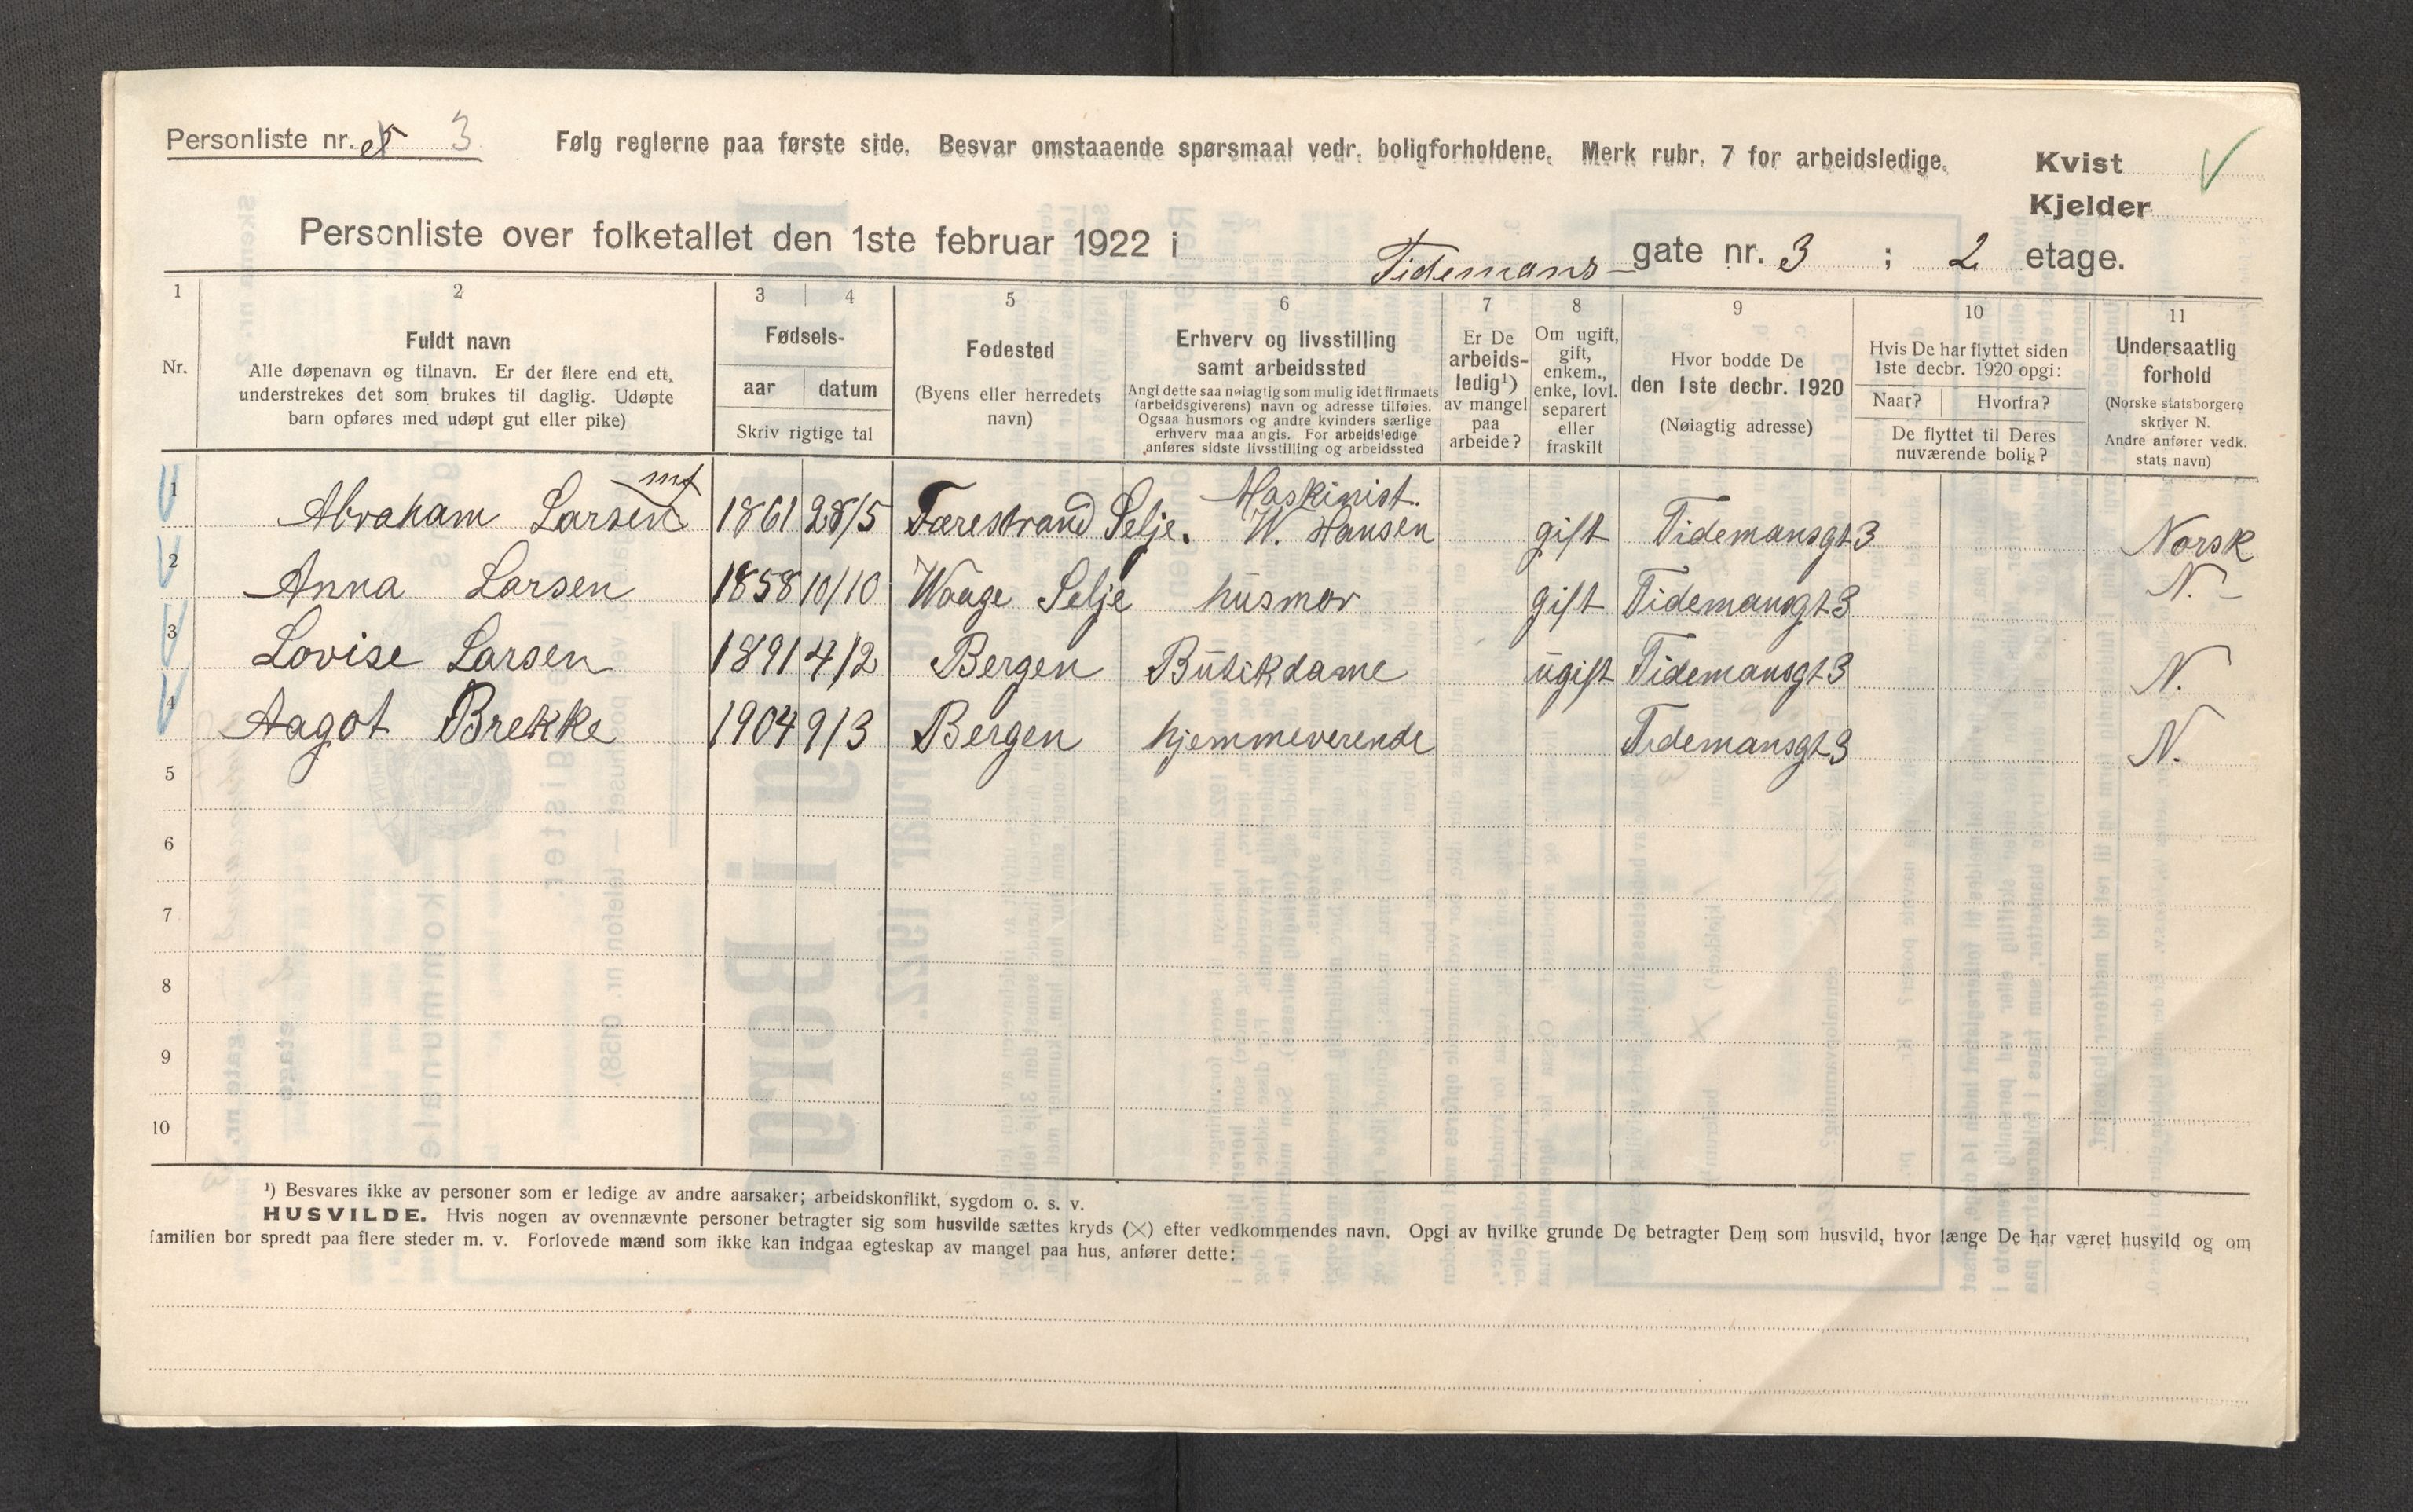 Personliste nr. 3 Følg reglerne paa første side. Besvar omstaaende spørsmaal vedr. boligforholdene. Merk rubr. 7 for arbeidsledige.
Kvist
Kjelder
Personliste over folketallet den 1ste februar 1922 i Tidemans- gate nr. 3 ; 2 etage.
1 2 3 4 5 6 7 8 9 10 11
Nr.
Fuldt navn
Alle døpenavn og tilnavn. Er der flere end ett,
understrekes det som brukes til daglig. Udøpte
barn opføres med udøpt gut eller pike)
Fødsels-
aar datum
Skriv rigtige tal
Fødested
(Byens eller herredets
navn)
Erhverv og livsstilling
samt arbeidssted
Angi dette saa nøiagtig som mulig idet firmaets
(arbeidsgiverens) navn og adresse tilføies.
Ogsaa husmors og andre kvinders særlige
erhverv maa angis. For arbeidsledige
anføres sidste livsstilling og arbeidssted
Er De
arbeids-
ledig¹)
av mangel
paa
arbeide?
Om ugift,
gift,
enkem.,
enke, lovl.
separert
eller
fraskilt
Hvor bodde De
den 1ste decbr. 1920
(Nøiagtig adresse)
Hvis De har flyttet siden
1ste decbr. 1920 opgi:
Naar? Hvorfra?
De flyttet til Deres
nuværende bolig?
Undersaatlig
forhold
(Norske statsborgere
skriver N.
Andre anfører vedk.
stats navn)
1 Abraham Larsen 1861 28/5 Færestrand Selje. Maskinist. W. Hansen gift Tidemansgt 3 Norsk
2 Anna Larsen 1858 10/10 Waage Selje husmor gift Tidemansgt 3 N. -
3 Lovise Larsen 1891 4/12 Bergen Butikdame ugift Tidemansgt 3 N.
4 Aagot Brekke 1904 9/3 Bergen hjemmeverende Tidemansgt 3 N.
5
6
7
8
9
10
¹) Besvares ikke av personer som er ledige av andre aarsaker; arbeidskonflikt, sygdom o. s. v.
HUSVILDE. Hvis nogen av ovennævnte personer betragter sig som husvilde sættes kryds (×) efter vedkommendes navn. Opgi av hvilke grunde De betragter Dem som husvild, hvor længe De har været husvild og om
familien bor spredt paa flere steder m. v. Forlovede mænd som ikke kan indgaa egteskap av mangel paa hus, anfører dette: